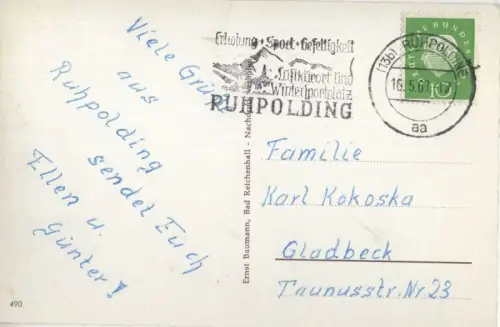 Viele Grüße
aus
Ruhpolding
sendet Euch
Ellen u.
Günter!
Erholung + Sport + Geselligkeit
Luftkurort und
Wintersportplatz
RUHPOLDING
(13b) RUHPOLDING
16.5.61
aa
Ernst Baumann, Bad Reichenhall - Nachdruck
Familie
Karl Kokoska
Gladbeck
Taunusstr. Nr 23
490